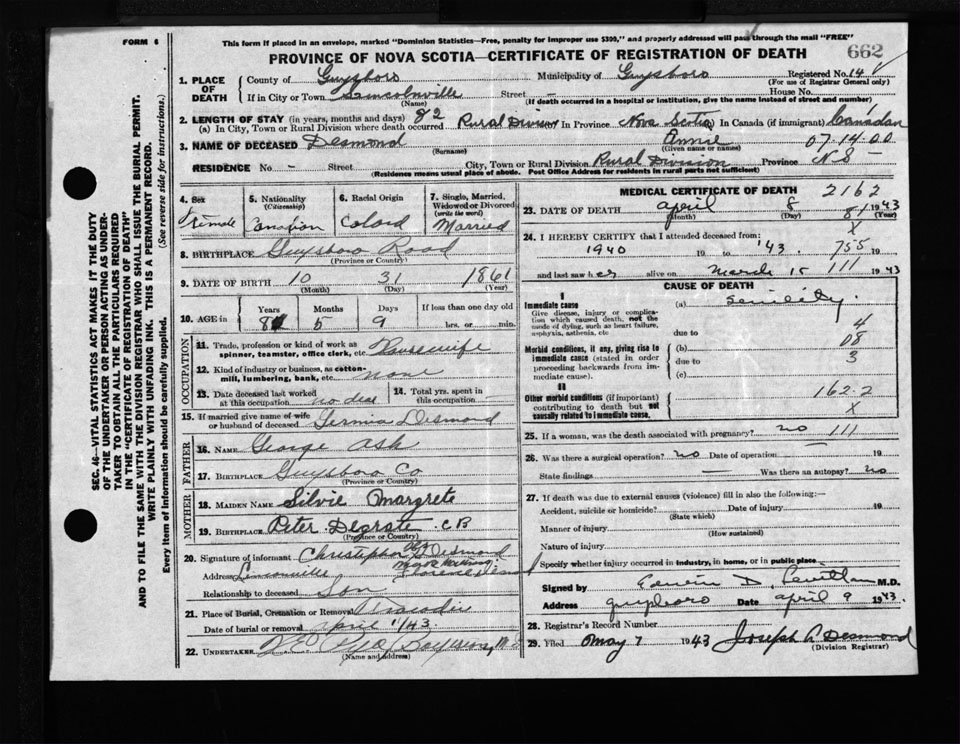 FORM 6
This form if placed in an envelope, marked "Dominion Statistics—Free, penalty for improper use $300," and properly addressed will pass through the mail "FREE"
662
PROVINCE OF NOVA SCOTIA—CERTIFICATE OF REGISTRATION OF DEATH
SEC. 46—VITAL STATISTICS ACT MAKES IT THE DUTY
OF THE UNDERTAKER OR PERSON ACTING AS UNDER-
TAKER TO OBTAIN ALL THE PARTICULARS REQUIRED
IN THE "CERTIFICATE OF REGISTRATION OF DEATH"
AND TO FILE THE SAME WITH THE DIVISION REGISTRAR WHO SHALL ISSUE THE BURIAL PERMIT.
WRITE PLAINLY WITH UNFADING INK. THIS IS A PERMANENT RECORD.
Every item of information should be carefully supplied. (See reverse side for instructions.)
1. PLACE OF DEATH
County of Guysboro Municipality of Guysboro Registered No. 14
(For use of Registrar General only)
If in City or Town Lincolnville Street — House No.
(Name) (If death occurred in a hospital or institution, give the name instead of street and number)
2. LENGTH OF STAY (in years, months and days) 82
(a) In City, Town or Rural Division where death occurred Rural Division In Province Nova Scotia In Canada (if immigrant) Canadian
3. NAME OF DECEASED Desmond Annie 07-14-00
(Surname) (Given name or names)
RESIDENCE No - Street City, Town or Rural Division Rural Division Province N S
(Residence means usual place of abode. Post Office Address for residents in rural parts not sufficient)
4. Sex Female
5. Nationality (Citizenship) Canadian
6. Racial Origin Colord
7. Single, Married, Widowed or Divorced (write the word) Married
8. BIRTHPLACE Guysboro Road
(Province or Country)
9. DATE OF BIRTH 10 31 1861
(Month) (Day) (Year)
10. AGE in Years Months Days If less than one day old
81 5 9 hrs. or min.
OCCUPATION
11. Trade, profession or kind of work as spinner, teamster, office clerk, etc. Housewife
12. Kind of industry or business, as cotton-mill, lumbering, bank, etc. none
13. Date deceased last worked at this occupation
14. Total yrs. spent in this occupation
15. If married give name of wife or husband of deceased Desmond
FATHER
16. NAME George Ash
17. BIRTHPLACE Guysboro Co
(Province or Country)
MOTHER
18. MAIDEN NAME Silvie Margrete
19. BIRTHPLACE Peter C B
(Province or Country)
20. Signature of informant Christopher Desmond
Address Linconville Florence
Relationship to deceased Son
21. Place of Burial, Cremation or Removal Tracadie
Date of burial or removal april 11/43
22. UNDERTAKER
(Name and address)
MEDICAL CERTIFICATE OF DEATH 2162
23. DATE OF DEATH april 8 1943
(Month) (Day) (Year)
81
X
24. I HEREBY CERTIFY that I attended deceased from:
1940 19 to '43. 755 19
and last saw her alive on March 15 111 1943
CAUSE OF DEATH
I
Immediate cause (a) Senility.
Give disease, injury or complication which caused death, not the mode of dying, such as heart failure, asphyxia, asthenia, etc
due to 4
Morbid conditions, if any, giving rise to immediate cause (stated in order proceeding backwards from immediate cause).
(b) 08
due to 3
(c)
II
Other morbid conditions (if important) contributing to death but not causally related to immediate cause.
162-2
X
25. If a woman, was the death associated with pregnancy? no 111
26. Was there a surgical operation? no Date of operation 19
State findings — Was there an autopsy? no
27. If death was due to external causes (violence) fill in also the following:—
Accident, suicide or homicide? Date of injury 19
(State which)
Manner of injury
(How sustained)
Nature of injury
Specify whether injury occurred in industry, in home, or in public place
Signed by D. M.D.
Address guysboro Date april 9 1943.
28. Registrar's Record Number
29. Filed May 7 1943 Joseph A Desmond
(Division Registrar)